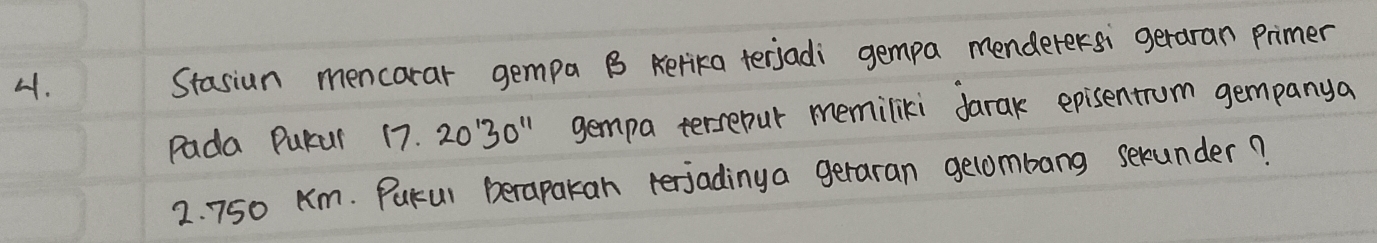 4. Stasiun mencatat gempa B ketika terjadi gempa mendeteksi getaran primer
pada pukul 17. 20'30" gempa tersebut memiliki jarak episentrum gempanya
2.750 km. Pukul berapakah terjadinya getaran gelombang sekunder?